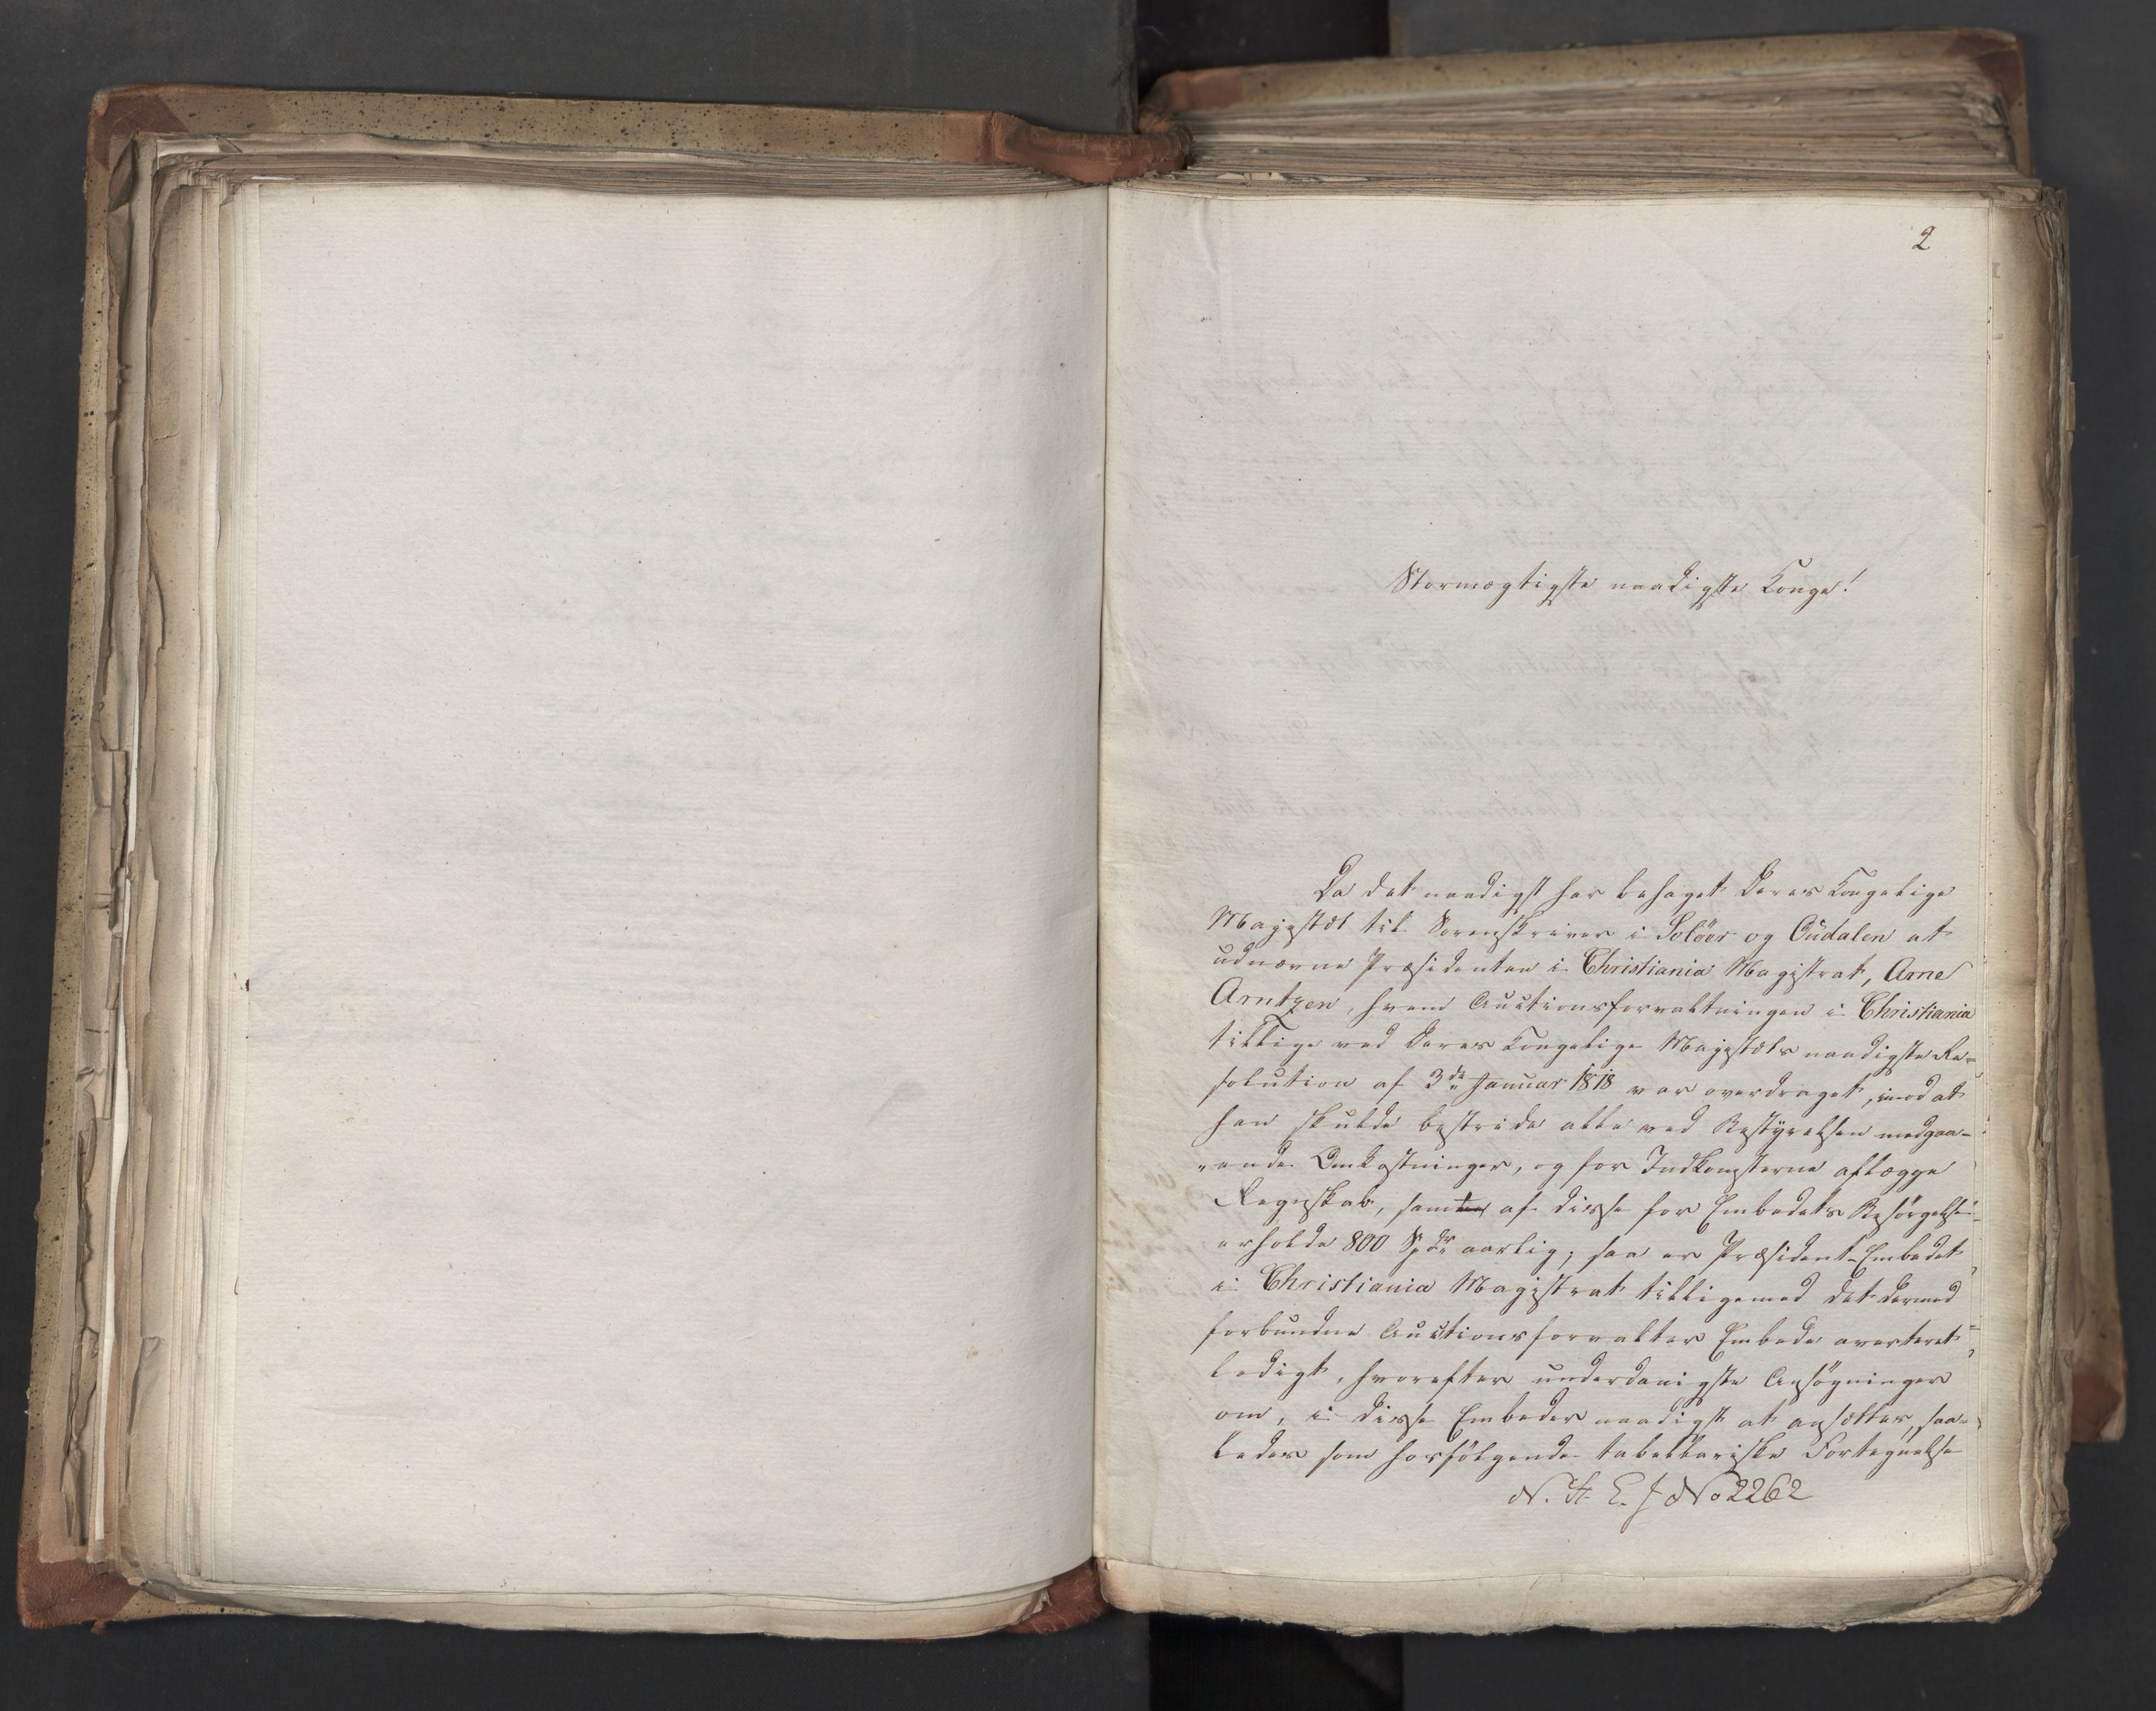 2
Stormægtigste naadigste Konge!
Da det naadigst har behaget Deres Kongelige
Majestæt til Sorenskriver i Solöer og Oudalen at
udnævne Præsidenten i Christiania Magistrat, Arne
Arntzen, hvem Auctionsforvaltningen i Christiania
tillige ved Deres Kongelige Majestæts naadigste Re-
solution af 3de Januar 1818 var overdraget, imod at
han skulde bestride alle ved Bestyrelsen medgaa-
ende Omkostninger, og for Indkomsterne aflægge
Regnskab, samt af disse for Embedets Besörgelse
erholde 800 Spdr aarlig; saa er Præsident-Embedet
i Christiania Magistrat tilligemed det dermed
forbundne Auctionsforvalter Embede averteret
ledigt, hvorefter underdanigste Ansögninger
om, i disse Embeder naadigst at ansættes, saa-
ledes som hosfölgende tabellariske Fortegnelse
N. St. E. J No 2262